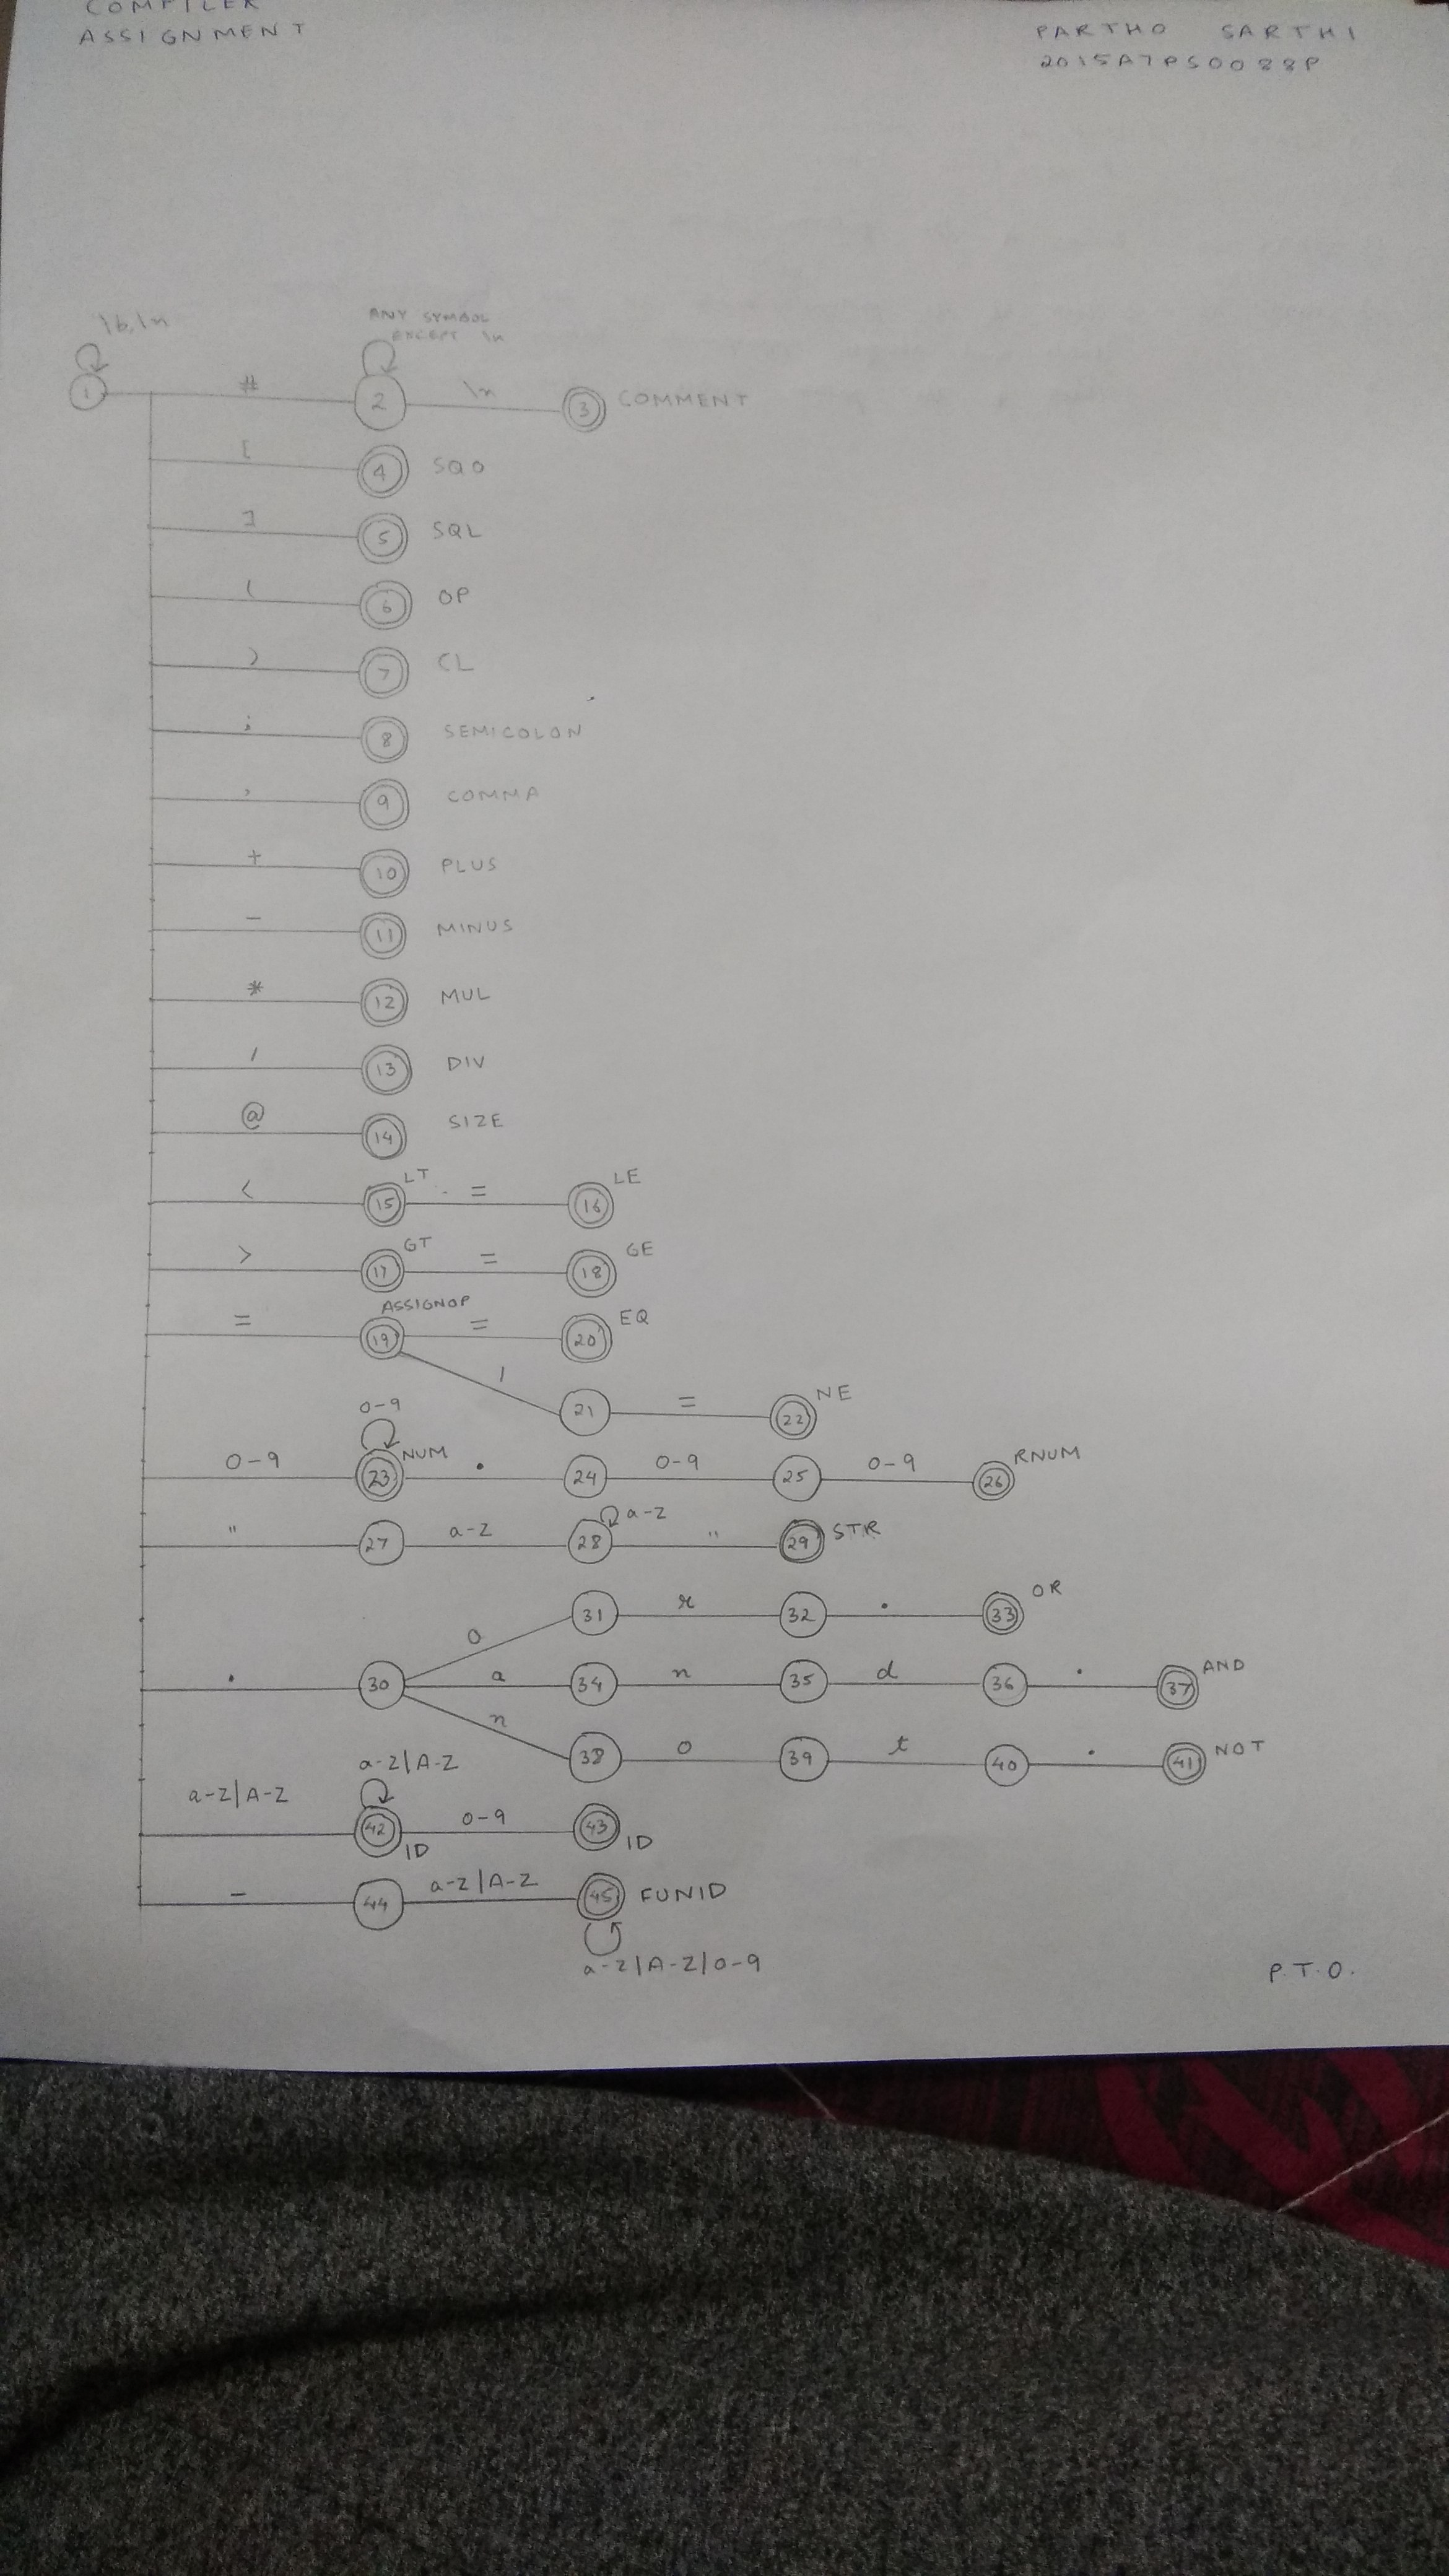 COMPILER
ASSIGNMENT
PARTHO SARTHI
2015A7PS0088P
\b,\n
ANY SYMBOL
EXCEPT \n
1 # 2 \n 3 COMMENT
[ 4 SQO
] 5 SQL
( 6 OP
) 7 CL
; 8 SEMICOLON
, 9 COMMA
+ 10 PLUS
- 11 MINUS
* 12 MUL
/ 13 DIV
@ 14 SIZE
< 15 LT = 16 LE
> 17 GT = 18 GE
= 19 ASSIGNOP = 20 EQ
/ 21 = 22 NE
0-9
0-9 23 NUM . 24 0-9 25 0-9 26 RNUM
" 27 a-z 28 a-z " 29 STR
o 31 r 32 . 33 OR
. 30 a 34 n 35 d 36 . 37 AND
n 38 o 39 t 40 . 41 NOT
a-z|A-Z
a-z|A-Z 42 ID 0-9 43 ID
_ 44 a-z|A-Z 45 FUNID
a-z|A-Z|0-9
P.T.O.